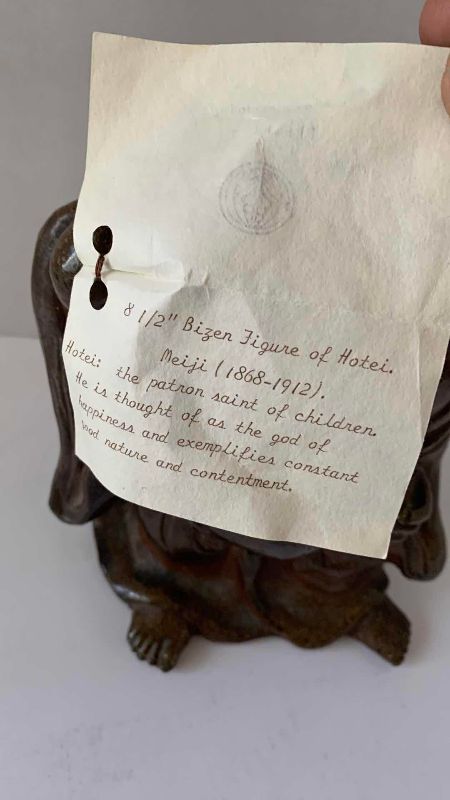 8 1/2" Bizen Figure of Hotei.
Meiji (1868-1912).
Hotei: the patron saint of children.
He is thought of as the god of
happiness and exemplifies constant
good nature and contentment.